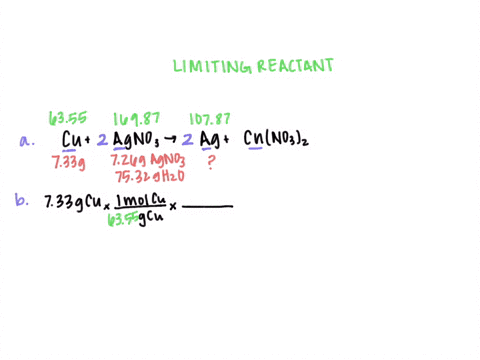 LIMITING REACTANT
63.55 169.87 107.87
a. Cu + 2 AgNO3 → 2 Ag + Cn(NO3)2
7.33g 7.26g AgNO3 ?
75.32gH2O
b. 7.33gCu x 1molCu x
63.55gCu